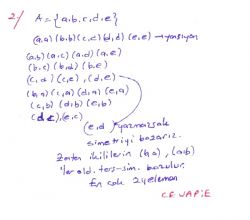 2/ A={a,b,c,d,e}
(a,a) (b,b) (c,c) (d,d) (e,e) → yansıyan
(a,b) (a,c) (a,d) (a,e)
(b,c) (b,d) (b,e)
(c,d) (c,e), (d,e)
(b,a) (c,a) (d,a) (e,a)
(c,b) (d,b) (e,b)
(d,c), (e,c)
(e,d) yazmazsak
simetriyi bozarız.
Zaten ikililerin (b,a), (a,b)
'ler old. ters-sim. bozulur.
En çok 24 eleman